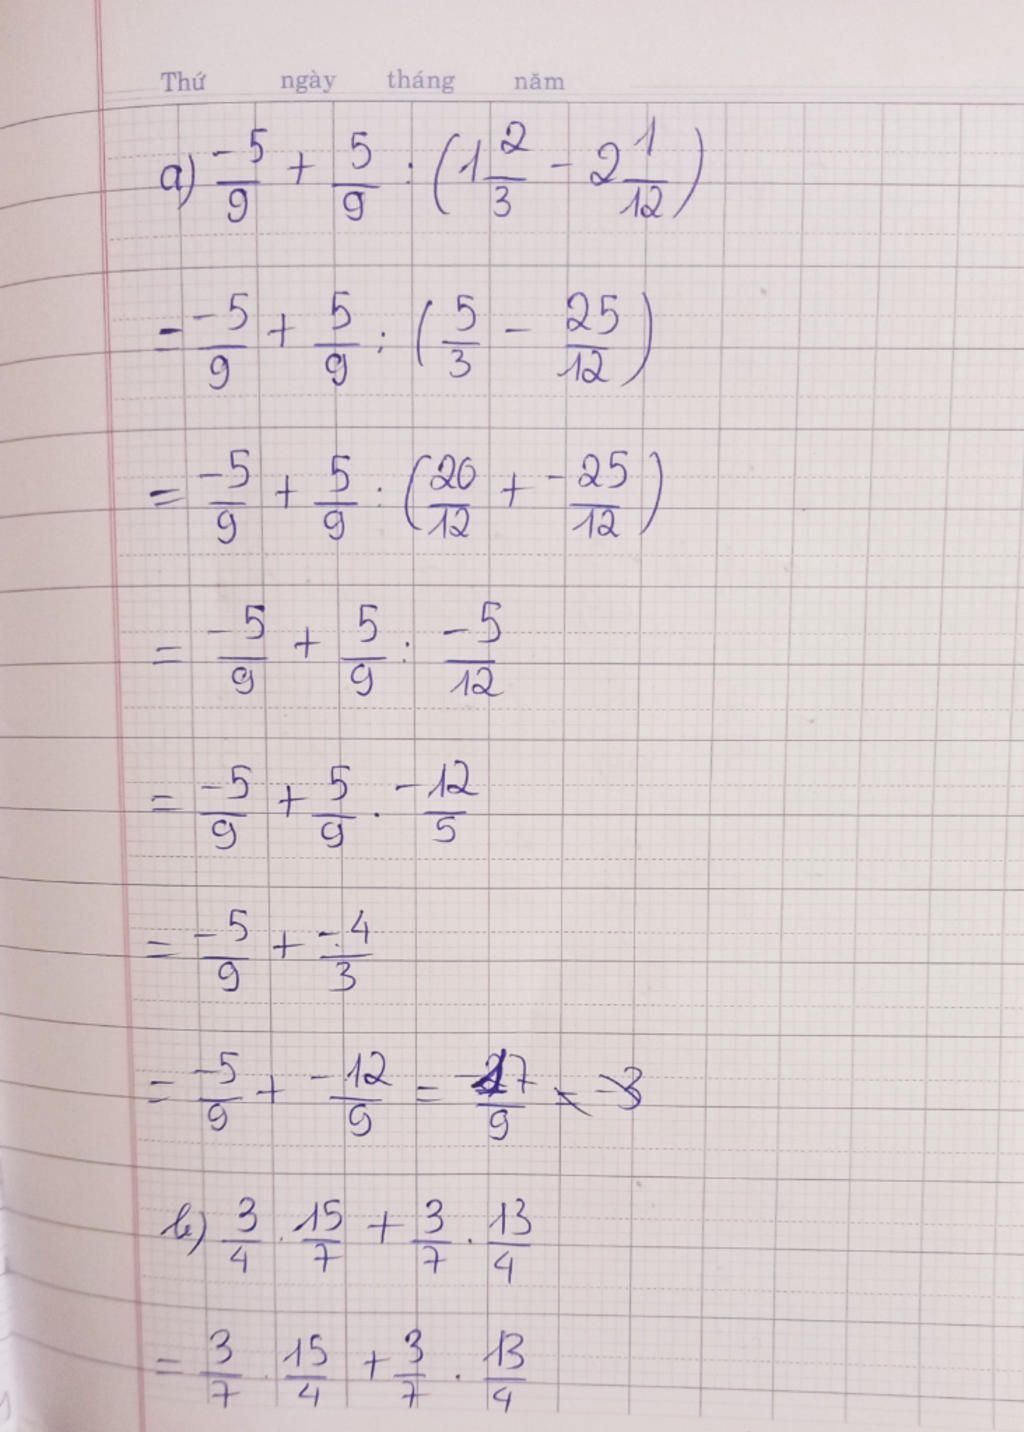 Thứ ngày tháng năm
a) -5/9 + 5/9 : (1 2/3 - 2 1/12)
= -5/9 + 5/9 : (5/3 - 25/12)
= -5/9 + 5/9 : (20/12 + -25/12)
= -5/9 + 5/9 : -5/12
= -5/9 + 5/9 . -12/5
= -5/9 + -4/3
= -5/9 + -12/9 = -17/9
b) 3/4 . 15/7 + 3/7 . 13/4
= 3/7 . 15/4 + 3/7 . 13/4